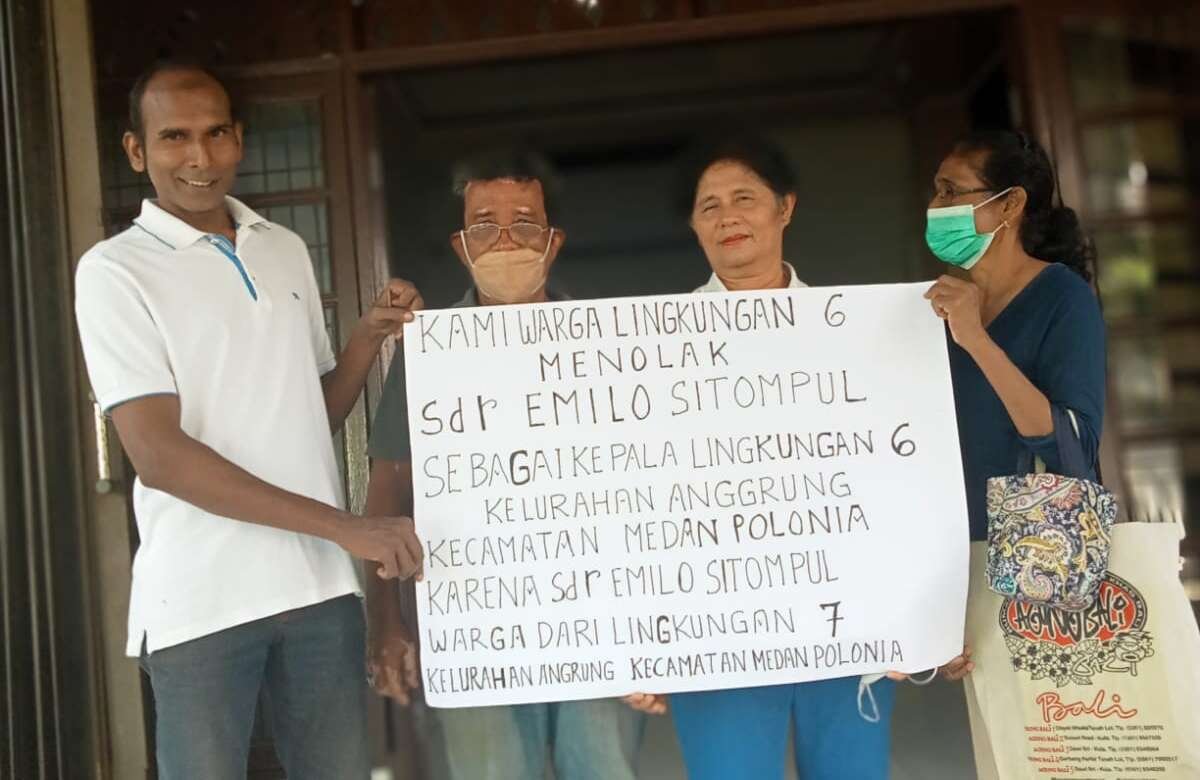 KAMI WARGA LINGKUNGAN 6
MENOLAK
sdr EMILO SITOMPUL
SEBAGAI KEPALA LINGKUNGAN 6
KELURAHAN ANGGRUNG
KECAMATAN MEDAN POLONIA
KARENA sdr EMILO SITOMPUL
WARGA DARI LINGKUNGAN 7
KELURAHAN ANGRUNG KECAMATAN MEDAN POLONIA
AGUNG BALI
Bali